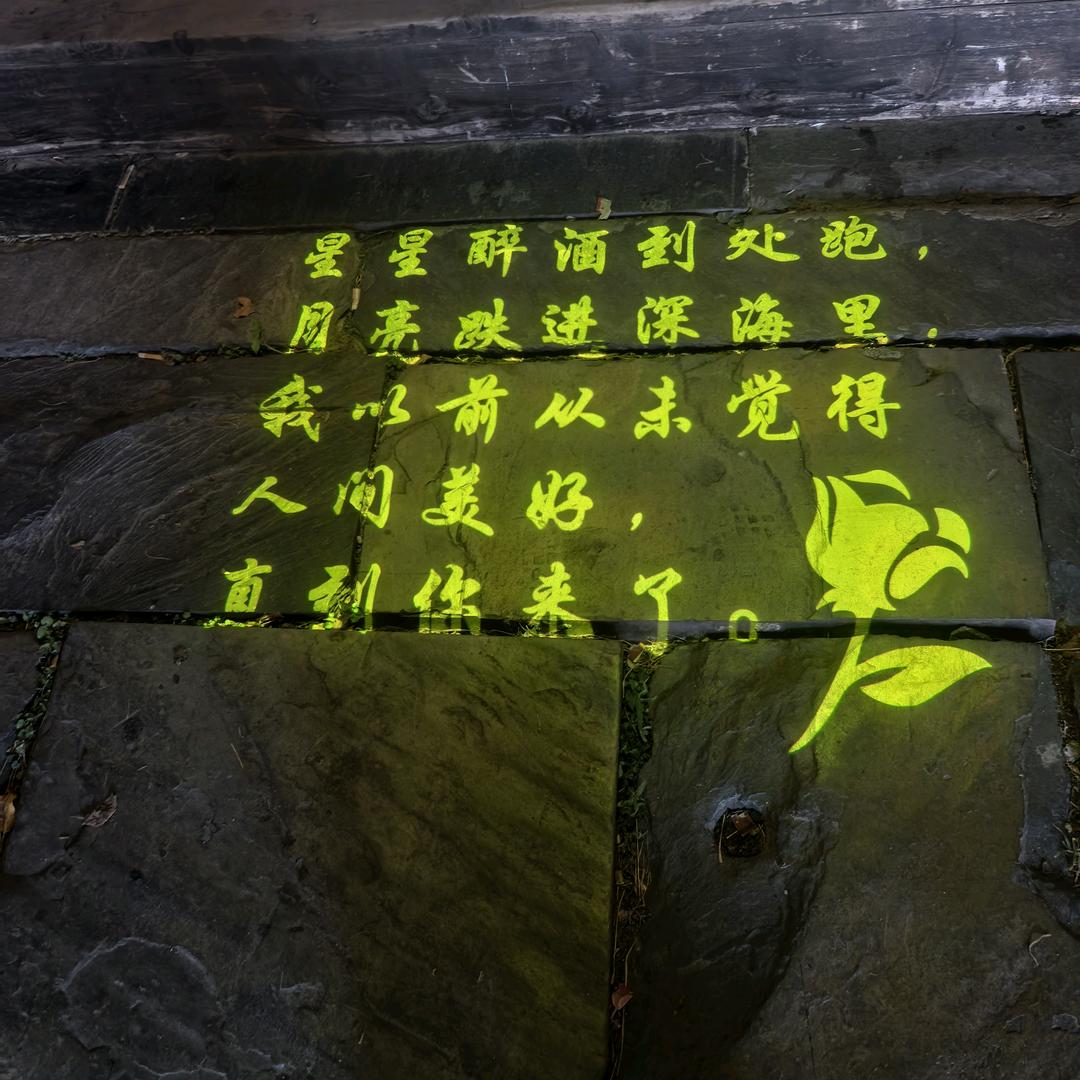 星星醉酒到处跑，
月亮跌进深海里，
我以前从未觉得
人间美好，
直到你来了。